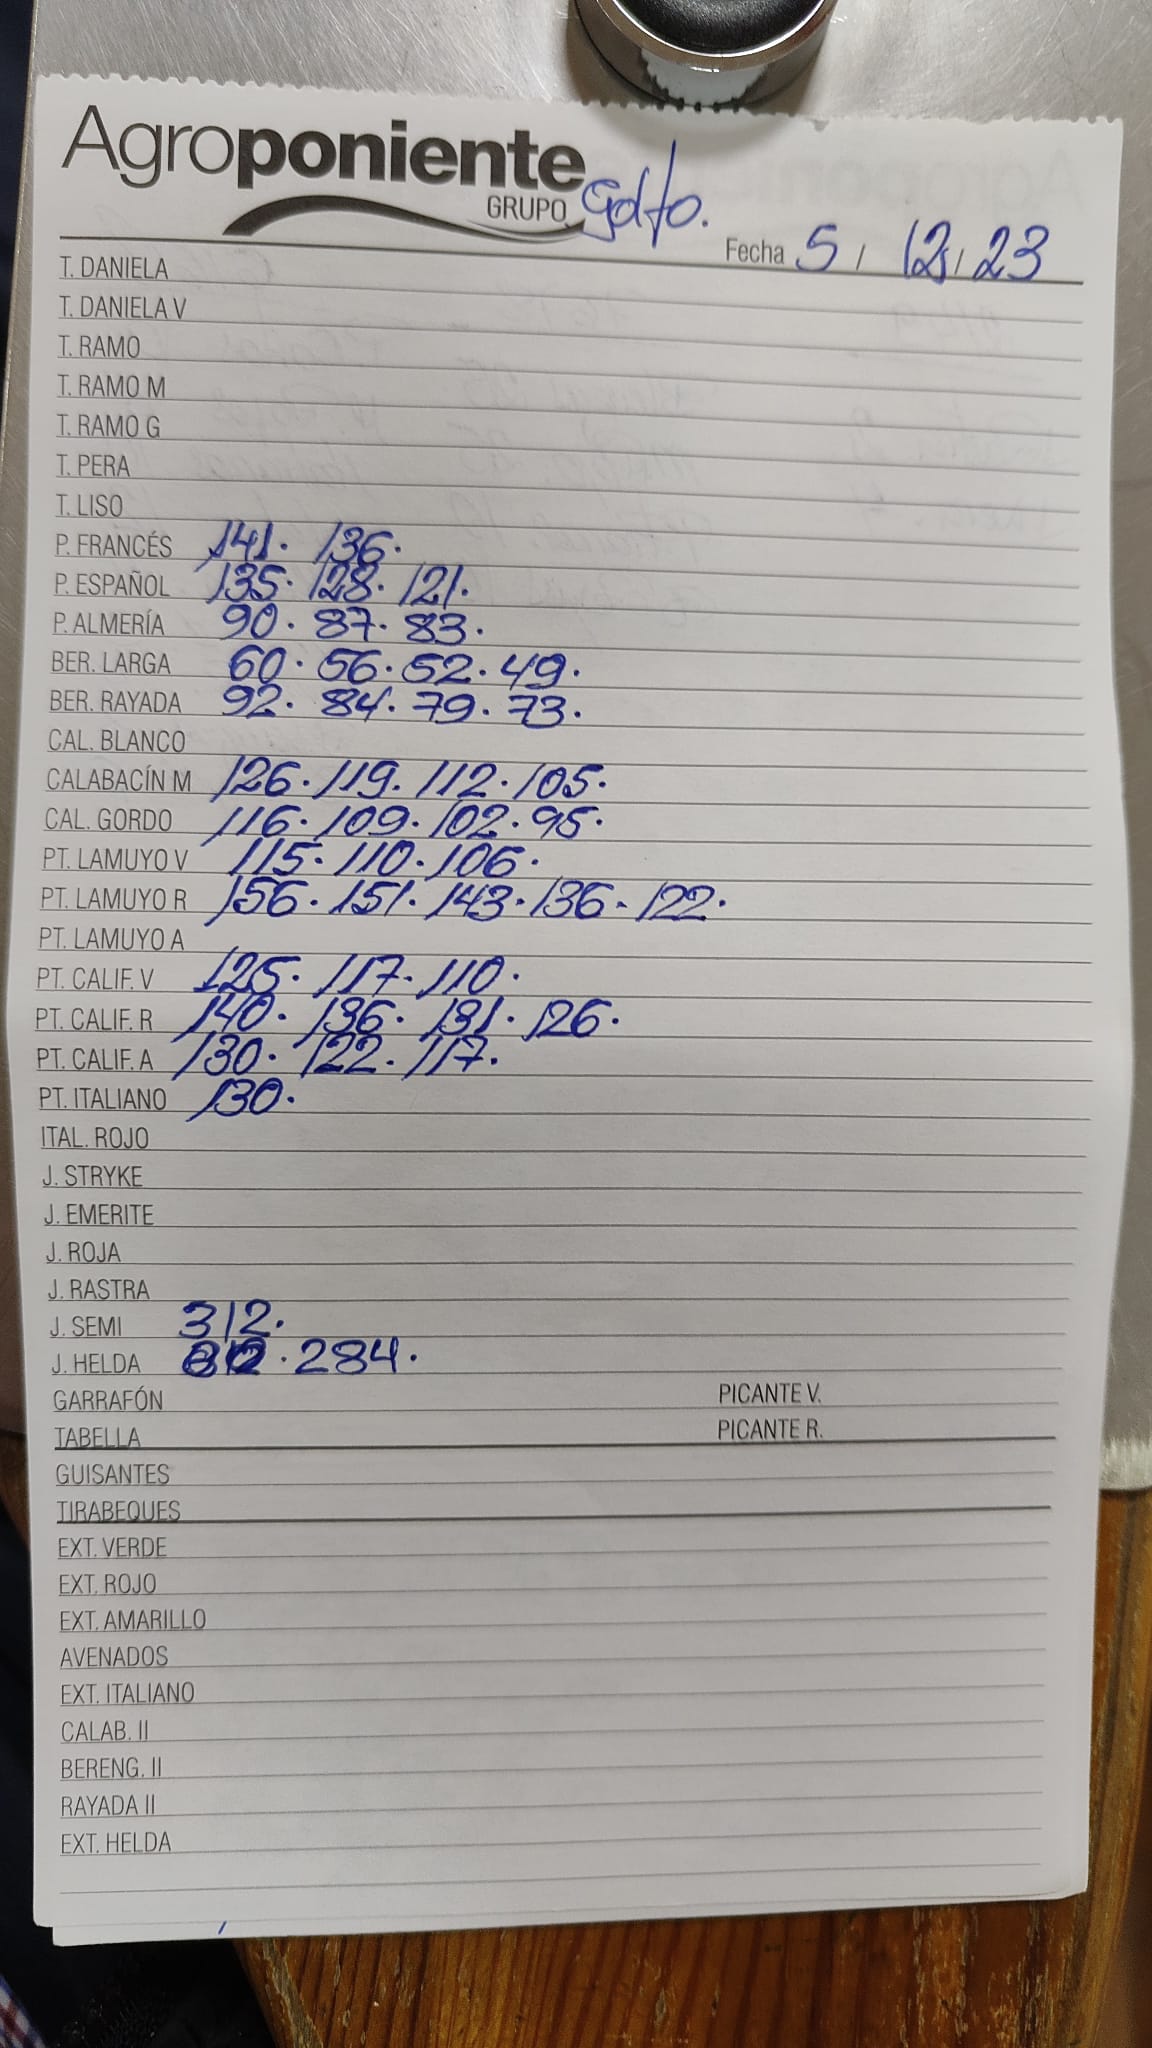 Agroponiente
GRUPO Gdfo.
Fecha 5 / 12 / 23
T. DANIELA
T. DANIELA V
T. RAMO
T. RAMO M
T. RAMO G
T. PERA
T. LISO
P. FRANCÉS 141. 136.
P. ESPAÑOL 135. 128. 121.
P. ALMERÍA 90. 87. 83.
BER. LARGA 60. 56. 52. 49.
BER. RAYADA 92. 84. 79. 73.
CAL. BLANCO
CALABACÍN M 126. 119. 112. 105.
CAL. GORDO 116. 109. 102. 95.
PT. LAMUYO V 115. 110. 106.
PT. LAMUYO R 156. 151. 143. 136. 122.
PT. LAMUYO A
PT. CALIF. V 125. 117. 110.
PT. CALIF. R 140. 136. 131. 126.
PT. CALIF. A 130. 122. 117.
PT. ITALIANO 130.
ITAL. ROJO
J. STRYKE
J. EMERITE
J. ROJA
J. RASTRA
J. SEMI 312.
J. HELDA . 284.
GARRAFÓN PICANTE V.
TABELLA PICANTE R.
GUISANTES
TIRABEQUES
EXT. VERDE
EXT. ROJO
EXT. AMARILLO
AVENADOS
EXT. ITALIANO
CALAB. II
BERENG. II
RAYADA II
EXT. HELDA